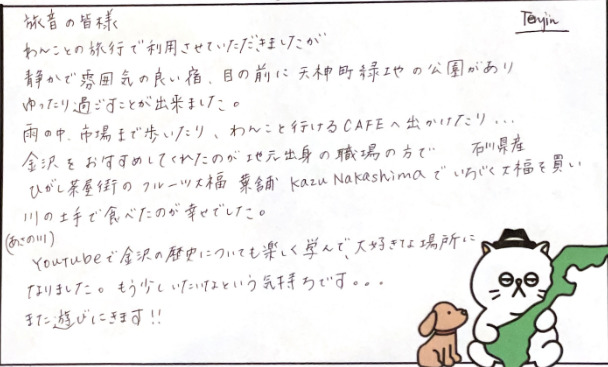 Tenjin
旅音の皆様
わんことの旅行で利用させていただきましたが
静かで雰囲気の良い宿、目の前に天神町緑地の公園があり
ゆったり過ごすことが出来ました。
雨の中、市場まで歩いたり、わんこと行けるCAFEへ出かけたり...
金沢をおすすめしてくれたのが地元出身の職場の方で 石川県産
ひがし茶屋街のフルーツ大福 菓舗 Kazu Nakashima でいちじく大福を買い
川の土手で食べたのが幸せでした。
(あさの川)
Youtubeで金沢の歴史についても楽しく学んで、大好きな場所に
なりました。もう少しいたいなという気持ちです。。。
また遊びにきます!!